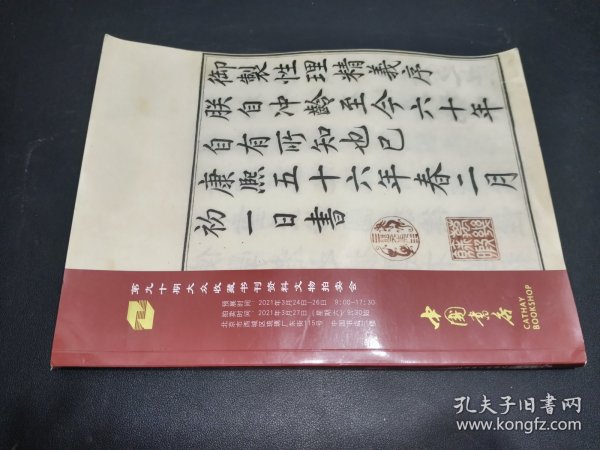 御製性理精義序
朕自冲齡至今六十年
自有所知也已
康熙五十六年春二月
初一日書
第九十期大众收藏书刊资料文物拍卖会
预展时间：2021年3月24日—26日 9:00—17:30
拍卖时间：2021年3月27日（星期六）9:30起
北京市西城区琉璃厂东街115号 中国书店二楼
中國書店
CATHAY
BOOKSHOP
孔夫子旧书网
www.kongfz.com